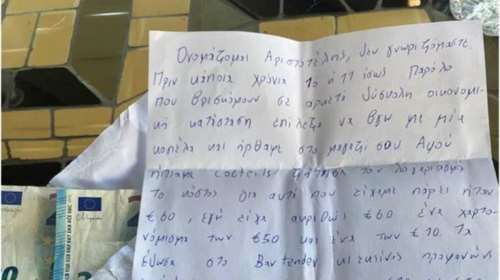 Ονομάζομαι Αριστοτέλης, δεν γνωριζόμαστε
Πριν κάποια χρόνια 10 ή 11 ίσως Παρόλο
που βρισκόμουν σε αρκετά δύσκολη οικονομι-
κή κατάσταση επίλεξα να βγω με μία
κοπέλα και ήρθαμε στο μαγαζί σου Αφού
ήπιαμε cocktails ζήτησα τον λογαριασμό
Το κόστος για αυτά που είχαμε πάρει ήταν
€60, εγώ είχα ακριβώς €60 ένα χαρτο-
νόμισμα των €50 και ένα των €10. Τα
έδωσα στο Bartender και εκείνος προφανώς